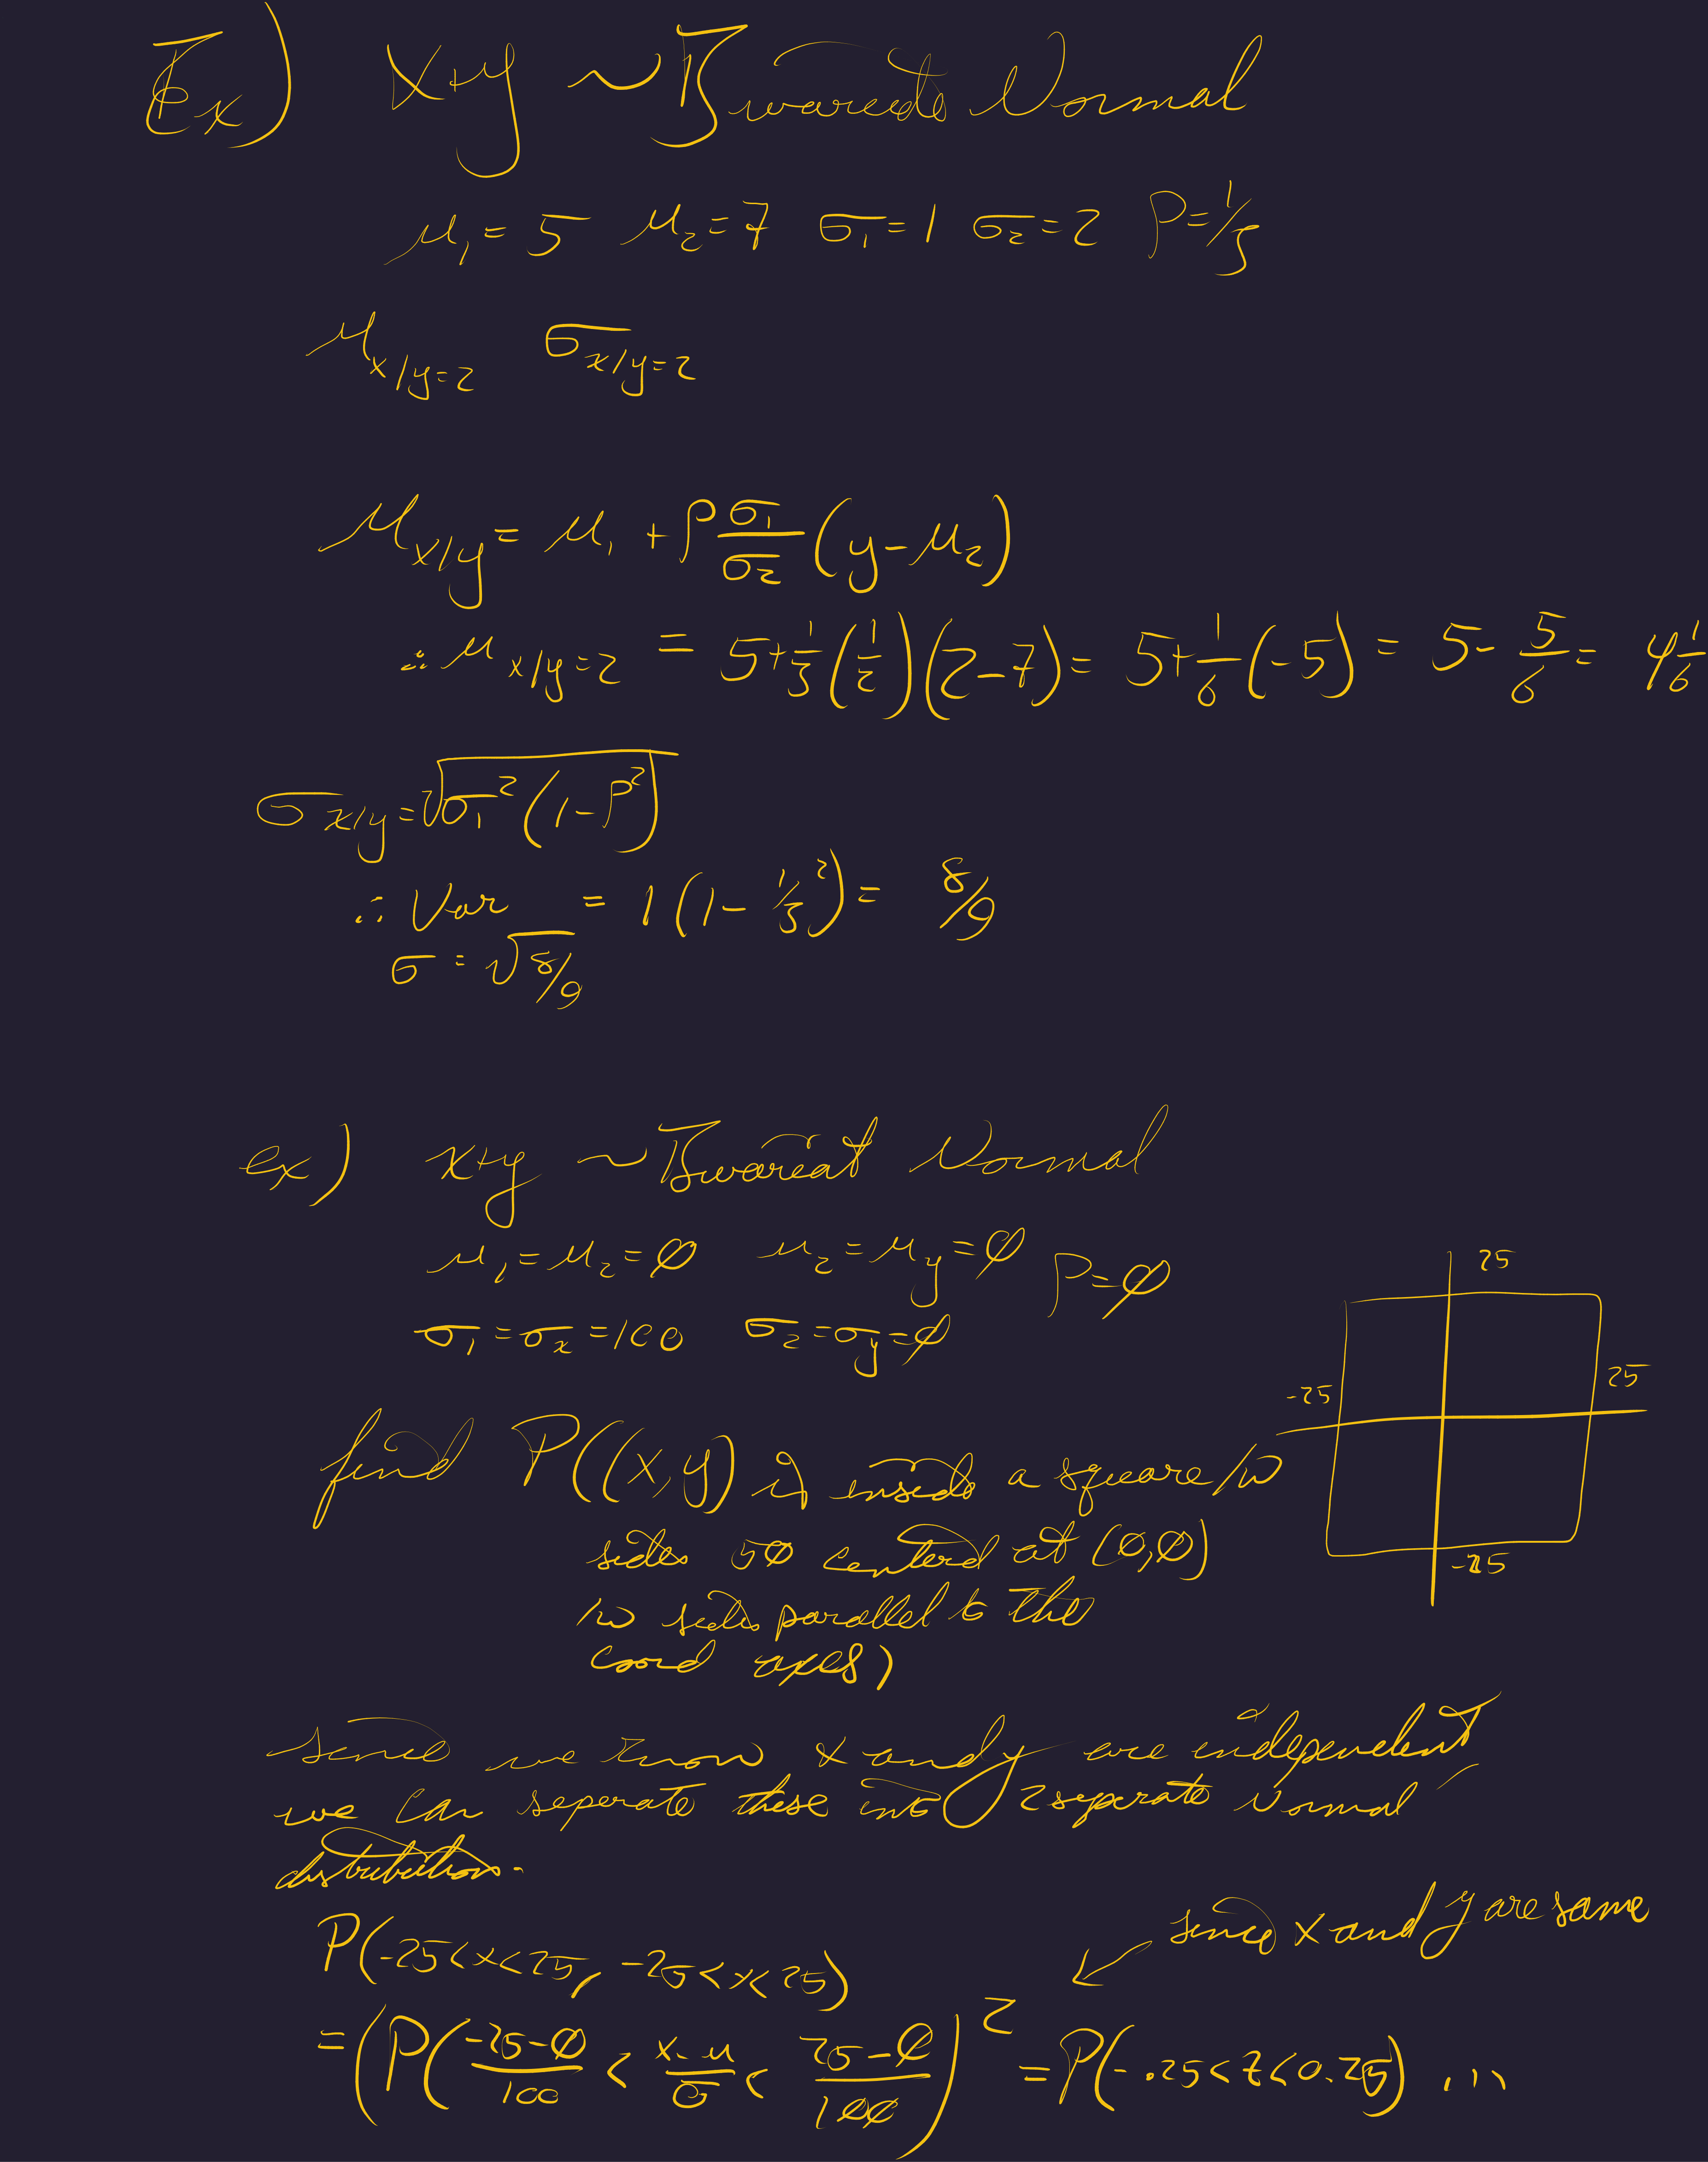 Ex) x+y ~ Bivariate Normal
μ₁ = 5 μ₂ = 7 σ₁ = 1 σ₂ = 2 ρ = 1/3
μ_{x|y=2} σ_{x|y=2}
μ_{x|y} = μ₁ + ρ σ₁/σ₂ (y - μ₂)
∴ μ_{x|y=2} = 5 + 1/3 (1/2)(2-7) = 5 + 1/6 (-5) = 5 - 5/6 = 4 1/6
σ_{x|y} = √(σ₁²(1-ρ²))
∴ Var = 1(1 - 1/3²) = 8/9
σ = √8/9
ex) x+y ~ Bivariat Normal
μ₁ = μ₂ = 0 μ₂ = μ_y = 0 ρ = 0
σ₁ = σ_x = 100 σ₂ = σ_y = 0
25
-25
25
-25
find P((x,y) is inside a square /w
sides 50 centerd at (0,0)
/w sides parallel to the
coord axes)
since we know x and y are independent
we can seperate these into 2 seperate normal
distributions.
since x and y are same
P(-25<x<25, -25<x<25)
= (P((-25-0)/100 < (x-μ)/σ < (25-0)/100))² = P(-.25<z<0.25) ...